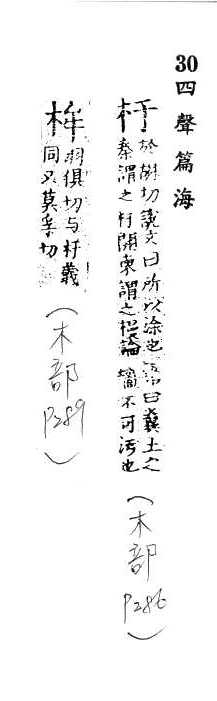 30 四聲篇海
杇 於胡切說文曰所以涂也 曰糞土之
秦謂之杇關東謂之槾論 牆不可污也
(木部 P286)
桙 羽俱切与杅義
同又莫 切
(木部 P289)